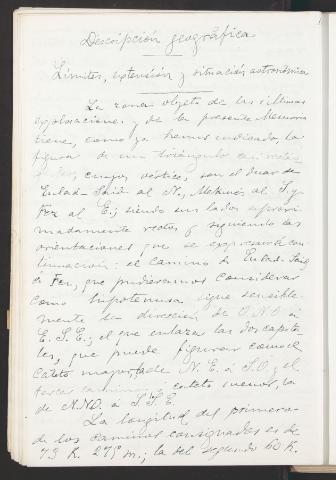 Descripción geográfica
Límites, extensión y situación astronómica
La zona objeto de las últimas
exploraciones y de la presente Memoria
tiene, como ya hemos indicado, la
figura de un triángulo casi rectángulo
cuyos vértices son el duar de
Eulad-Said al N., Mekinés al S. y
Fez al E.; siendo sus lados aproxi-
madamente rectos y siguiendo las
orientaciones que se expresan á con-
tinuación: el camino de Eulad-Said
á Fez, que pudiéramos considerar
como hipotenusa sigue sensible-
mente la dirección de O.N.O á
E.S.E.; el que enlaza las dos capita-
les, que puede figurar como el
cateto mayor, la de N.E. á S.O.; y el
cateto menor, la
de N.N.O. á S.S.E.
La longitud del primero
de los caminos consignados es de
73 K. 275 m.; la del segundo 60 K.